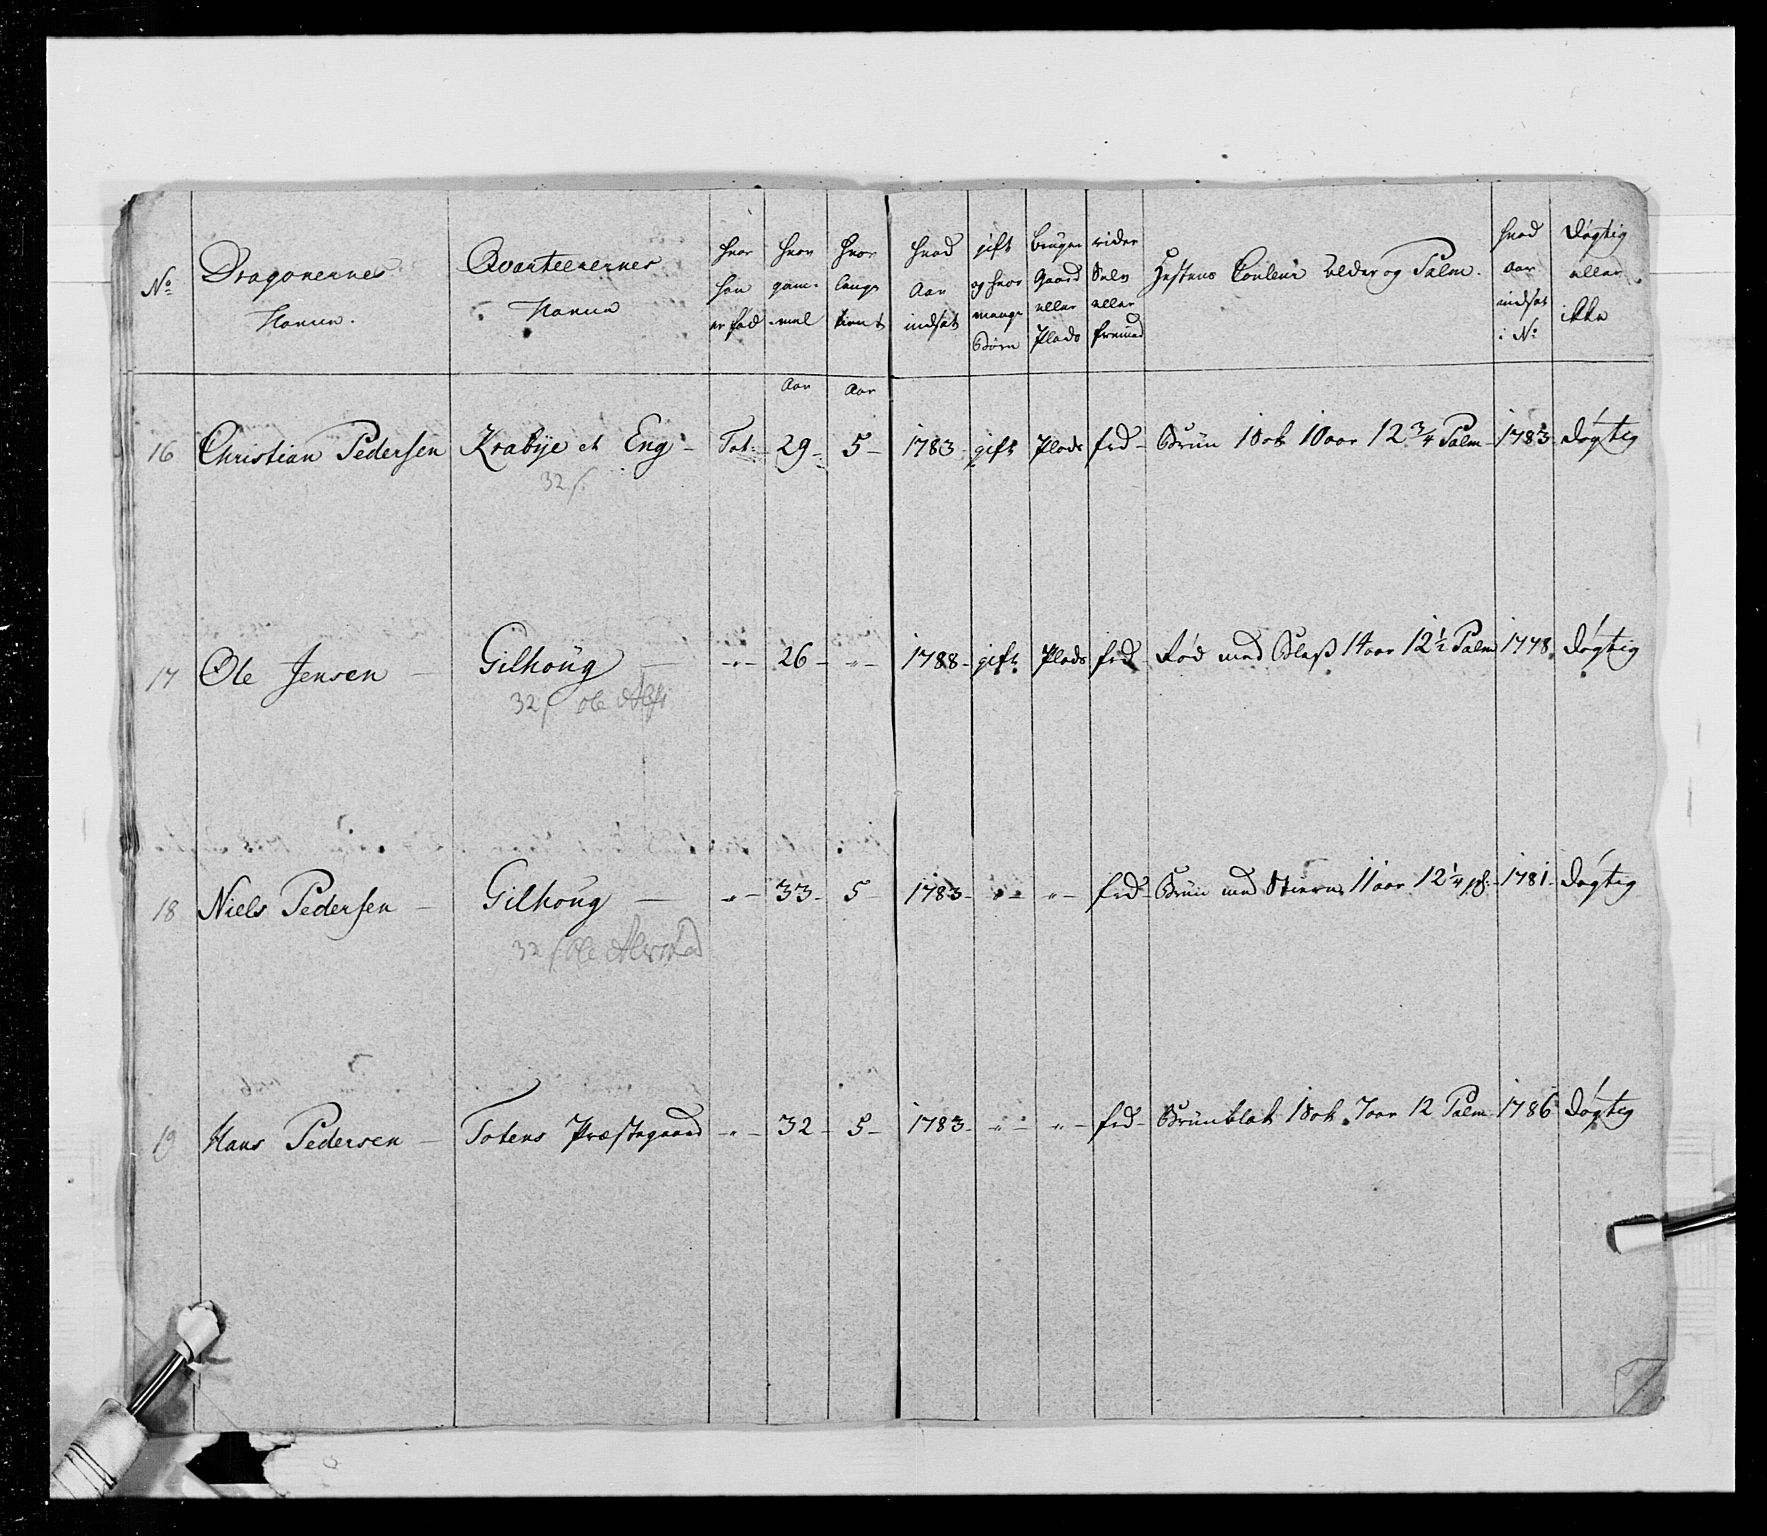 No
Dragonernes Navne.
Qvarteerernes Navne
hvor han er fød
hvor gam-mel
hvor længe tient
hvad Aar indsat
gift og hvor mange Børn
bruger Gaard eller Plads
rider Selv eller fremmed
Hestens Couleur alder og Palm.
hvad aar indsat i No
døgtig eller ikke
aar aar
16 Christian Pedersen Krabye et Eng - Tot: 29 - 5 - 1783 gift Plads frd - Brun 10 aar 12 3/4 Palm - 1783 døgtig
32 s.
17 Ole Jensen - Gilhoug - -"- 26 - -"- 1788 - gift Plads frd - Rød med Bless 14 aar 12 1/2 Palm 1778 døgtig
32 s Ole
18 Niels Pedersen - Gilhoug - -"- 33 - 5 - 1783 - -"- -"- frd - Brun med Stierne 11 aar 12 1/4 pl: - 1781 - døgtig
32 s Ole
19 Hans Pedersen - Totens Præstegaard -"- 32 - 5 - 1783 - -"- -"- frd - Brunblak 7 aar 12 Palm 1786 døgtig